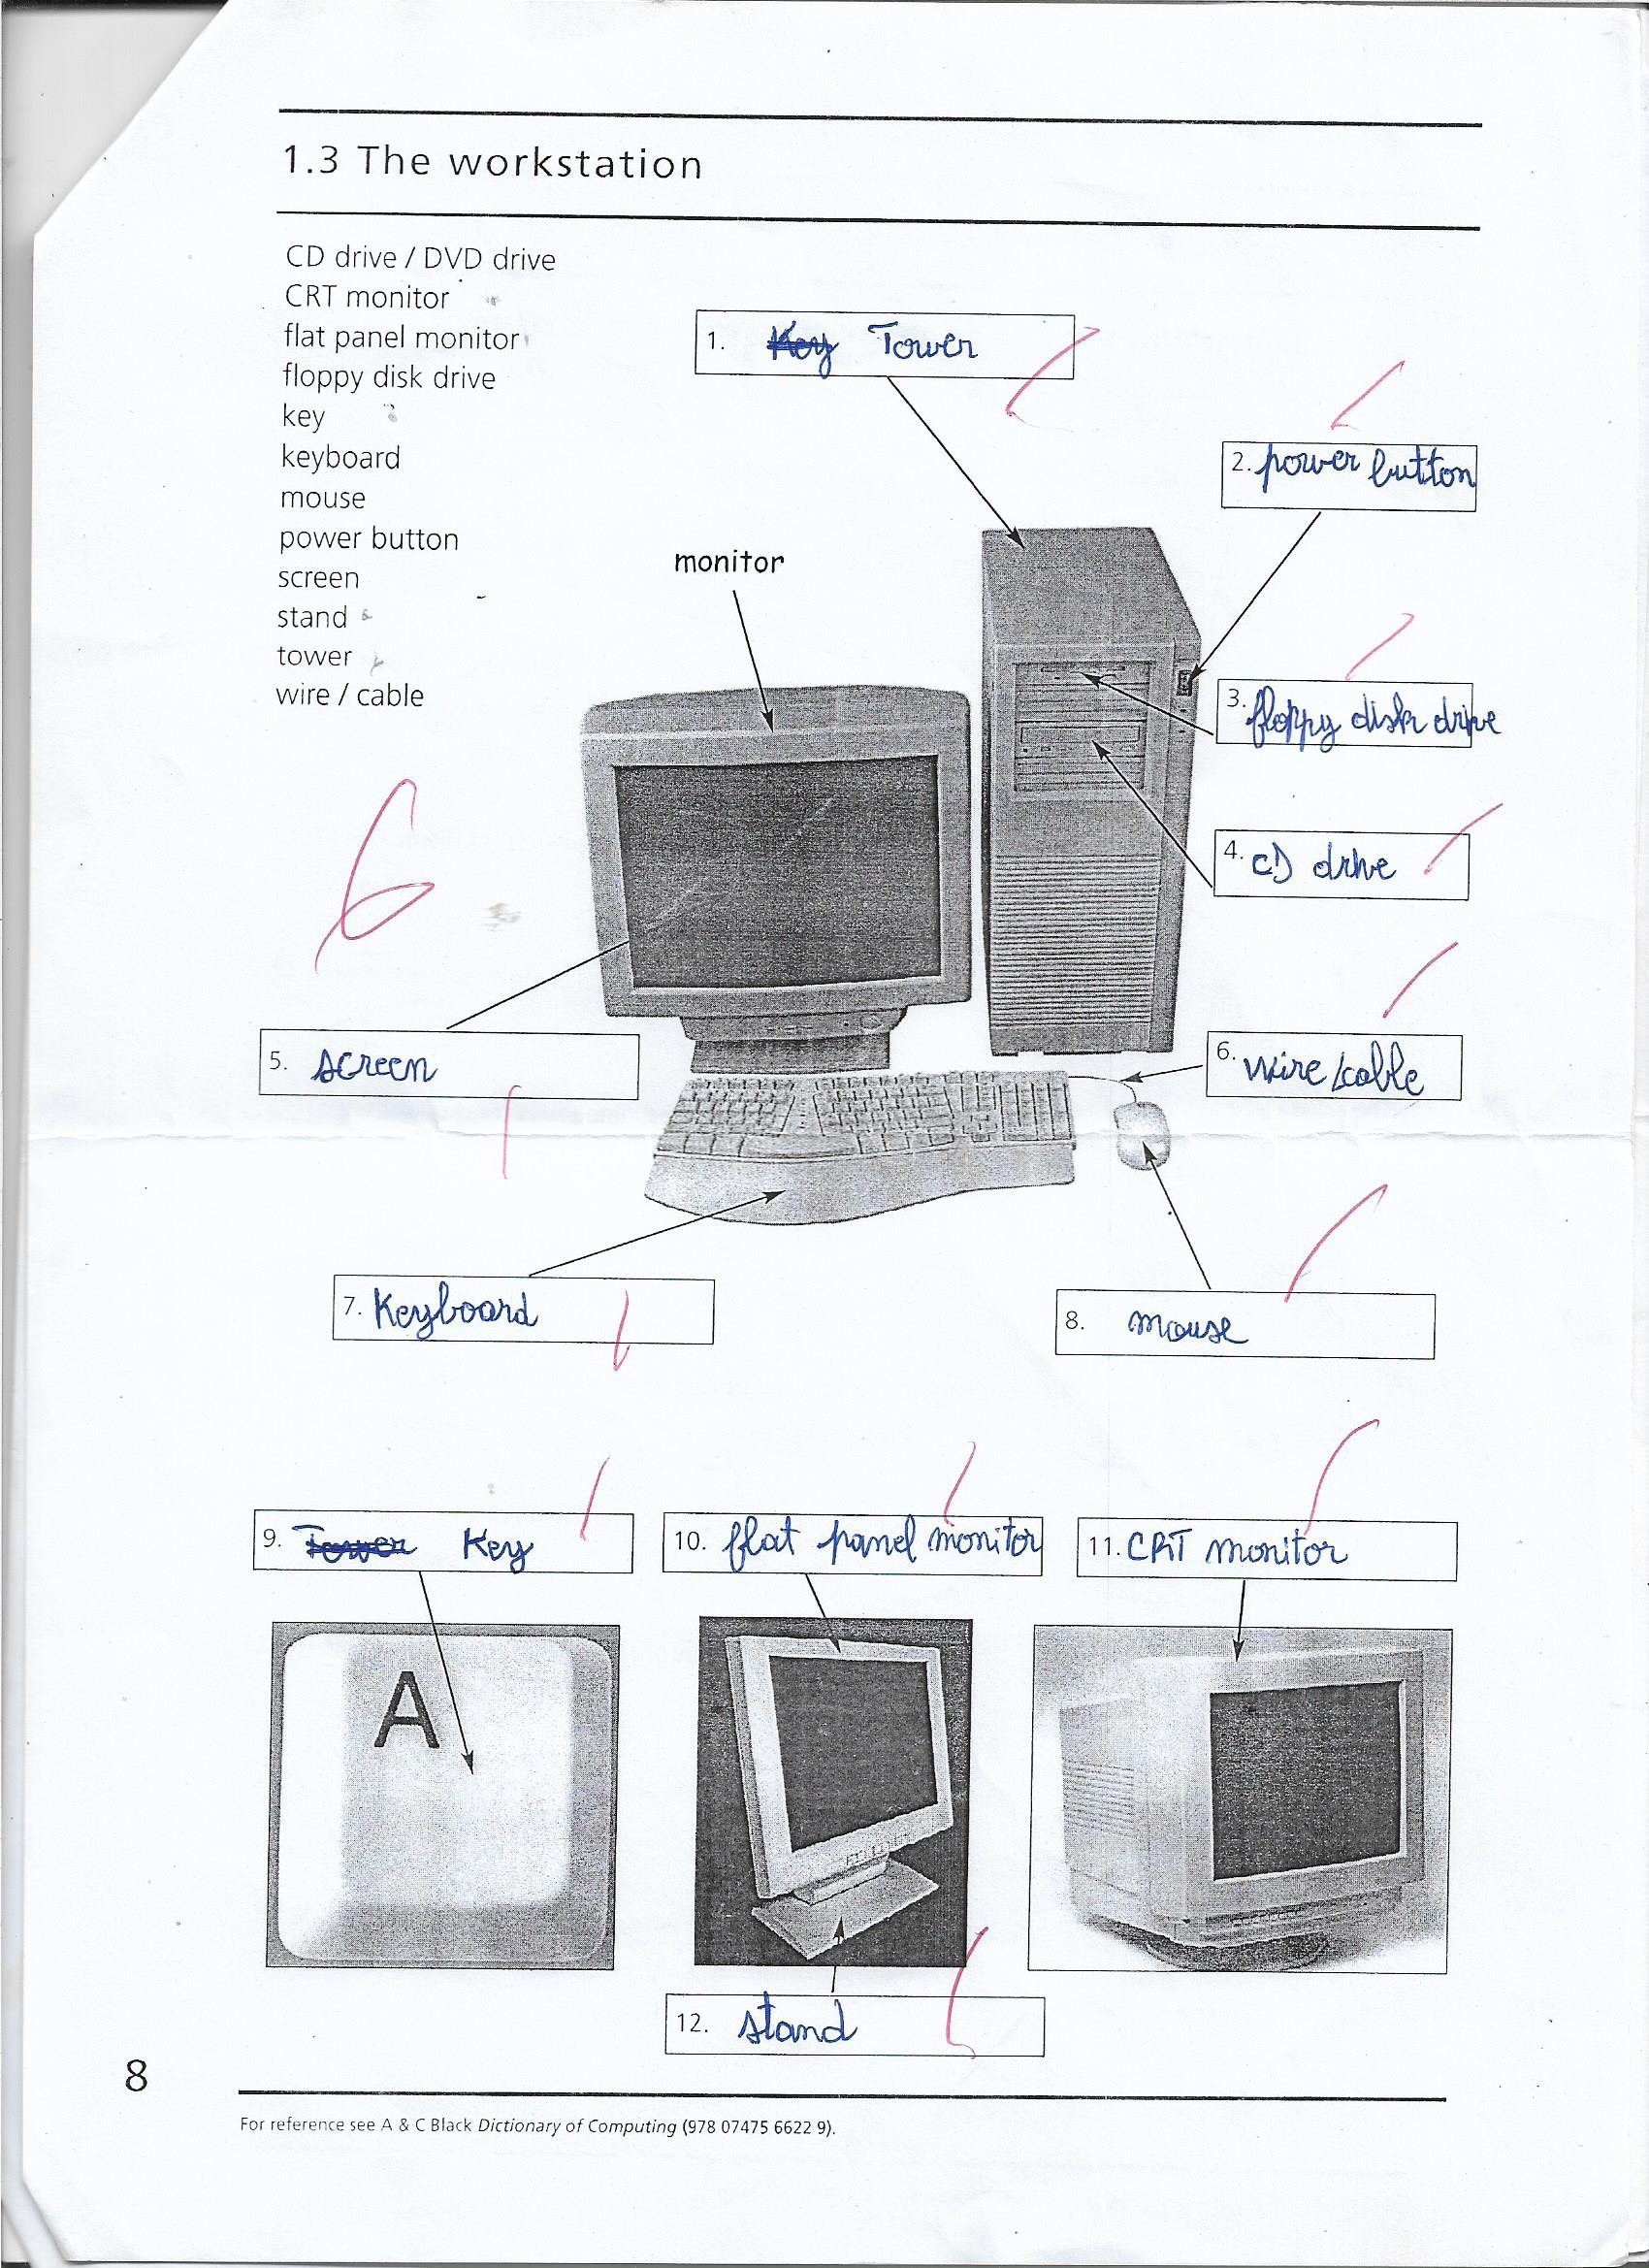 1.3 The workstation
CD drive / DVD drive
CRT monitor
flat panel monitor
floppy disk drive
key
keyboard
mouse
power button
screen
stand
tower
wire / cable
1. Key Tower
2. power button
monitor
3. floppy disk drive
4. CD drive
6
5. screen
6. wire/cable
7. Keyboard
8. mouse
9. Tower Key
10. flat panel monitor
11. CRT monitor
A
12. stand
8
For reference see A & C Black Dictionary of Computing (978 07475 6622 9).